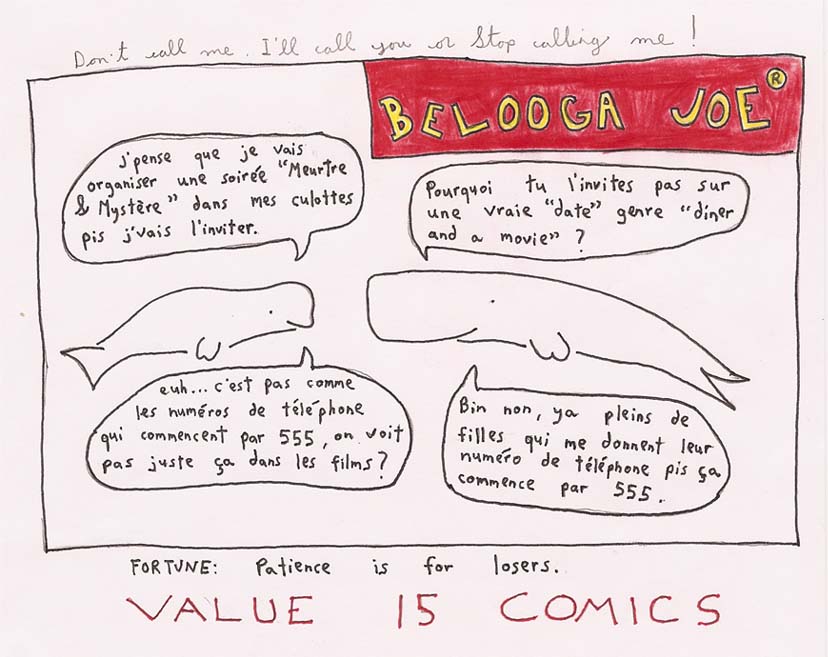 Don't call me. I'll call you or Stop calling me!
BELOOGA JOE®
j'pense que je vais
organiser une soirée "Meurtre
& Mystère" dans mes culottes
pis j'vais l'inviter.
Pourquoi tu l'invites pas sur
une vraie "date" genre "diner
and a movie"?
euh... c'est pas comme
les numéros de téléphone
qui commencent par 555, on voit
pas juste ça dans les films?
Bin non, ya pleins de
filles qui me donnent leur
numéro de téléphone pis ça
commence par 555.
FORTUNE: Patience is for losers.
VALUE 15 COMICS